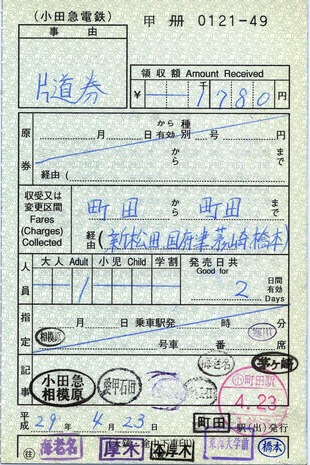 (小田急電鉄) 甲 冊 0121-49
事由
片道券
領収額 Amount Received
¥ 千 1780 円
原券
月 日 から有効 種別 号 円
から まで
経由 ( )
収受又は変更区間 Fares (Charges) Collected
町田 から 町田 まで
経由 (新松田、国府津、茅ヶ崎、橋本)
人員 大人 Adult 小児 Child 学割 発売日共 Good for
1 2 日間有効 Days
指定 月 日 乗車駅発 時 分
相模原 号車 番 席
海老名 茅ケ崎
記事 小田急相模原 愛甲石田 町田駅
4.23
平成 29. 4. 23 町田 駅(出)発行
(注) 海老名 厚木 本厚木 東海大学前 橋本